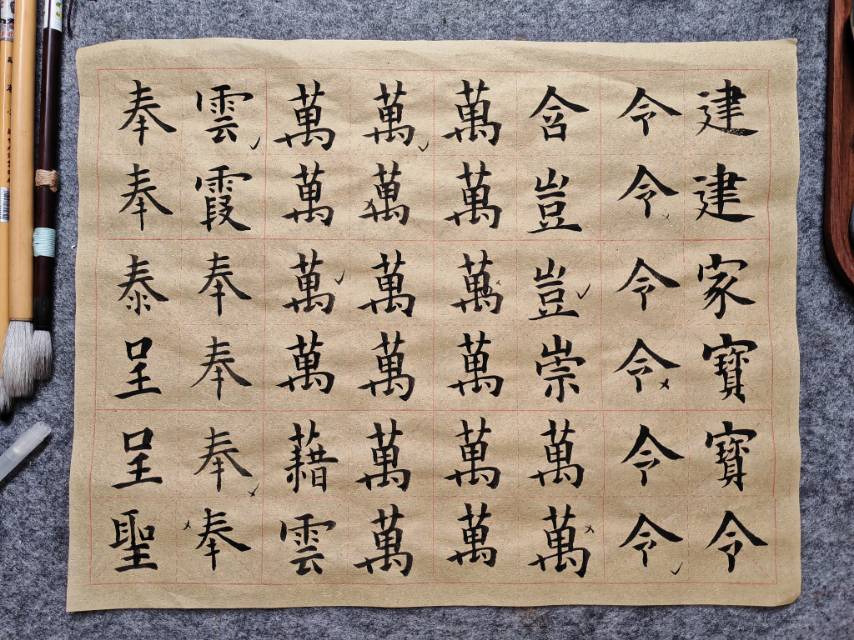 建建家寶寶令
令令令令令令
含豈豈崇萬萬
萬萬萬萬萬萬
萬萬萬萬萬萬
萬萬萬萬藉雲
雲霞奉奉奉奉
奉奉泰呈呈聖